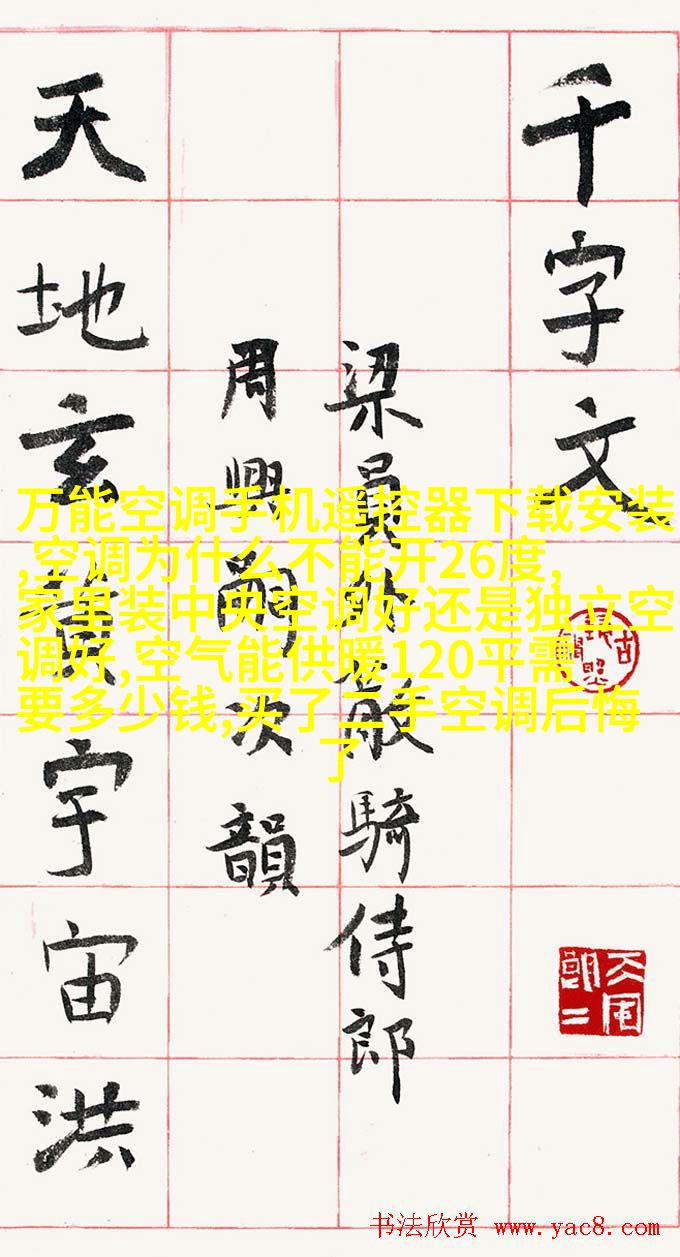 千字文
梁員外散騎侍郎
周興嗣次韻
天地玄黃宇宙洪
万能空调手机遥控器下载安装
,空调为什么不能开26度,
家里装中央空调好还是独立空
调好,空气能供暖120平需
要多少钱,买了二手空调后悔
了
书法欣赏 www.yac8.com